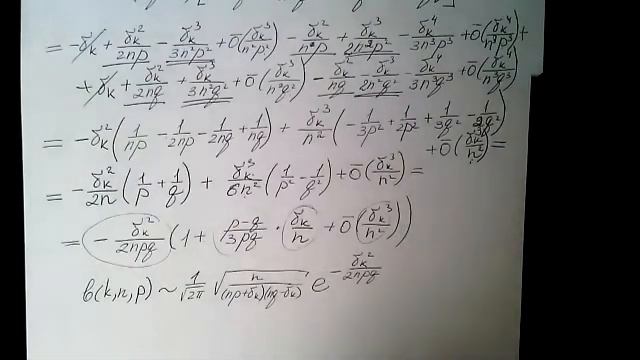 = -δ̶k̶ + δk²/2np - δk³/3n²p² + ō(δk³/n²p²) - δk²/np + δk³/2n²p² - δk⁴/3n³p³ + ō(δk⁴/n³p³) +
+ δ̶k̶ + δk²/2nq + δk³/3n²q² + ō(δk³/n²q²) - δk²/nq - δk³/2n²q² - δk⁴/3n³q³ + ō(δk⁴/n³q³) =
= -δk²(1/np - 1/2np - 1/2nq + 1/nq) + δk³/n²(-1/3p² + 1/2p² + 1/3q² - 1/2q²) + ō(δk³/n²) =
= -δk²/2n(1/p + 1/q) + δk³/6n²(1/p² - 1/q²) + ō(δk³/n²) =
= -δk²/2npq(1 + p-q/3pq · δk/n + ō(δk³/n²))
b(k,n,p) ~ 1/√2π √n/(np+δk)(nq-δk) e^-δk²/2npq